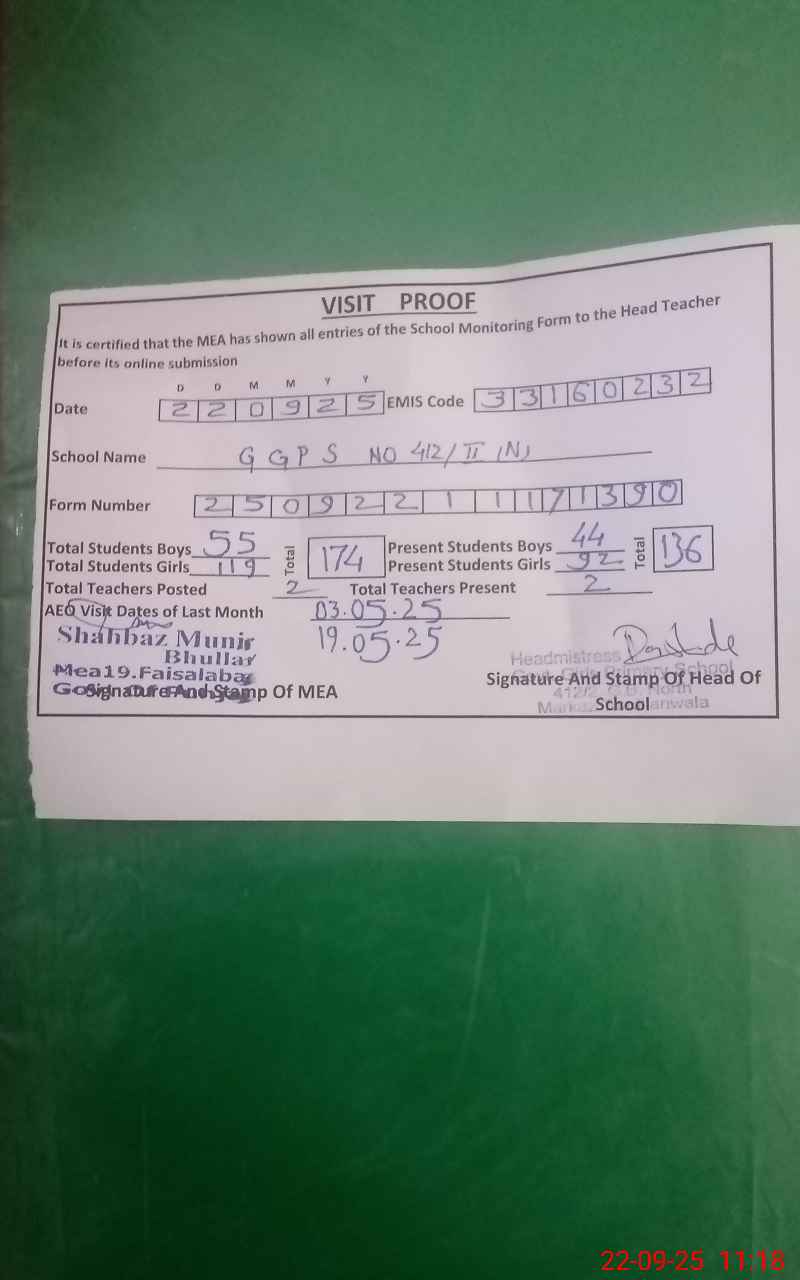 VISIT PROOF
It is certified that the MEA has shown all entries of the School Monitoring Form to the Head Teacher
before its online submission
D D M M Y Y
Date 2 2 0 9 2 5 EMIS Code 3 3 1 6 0 2 3 2
School Name G G P S NO 412/II (N)
Form Number 2 5 0 9 2 2 1 1 1 7 1 3 9 0
Total Students Boys 55 Total 174 Present Students Boys 44 Total 136
Total Students Girls 119 Present Students Girls 92
Total Teachers Posted 2 Total Teachers Present 2
AEO Visit Dates of Last Month 03.05.25
19.05.25
Shahbaz Munir
Bhullar
Mea19.Faisalabad
Signature And Stamp Of MEA
Headmistress
Primary School
Signature And Stamp Of Head Of
412/2, G.B. North
School
22-09-25 11:18